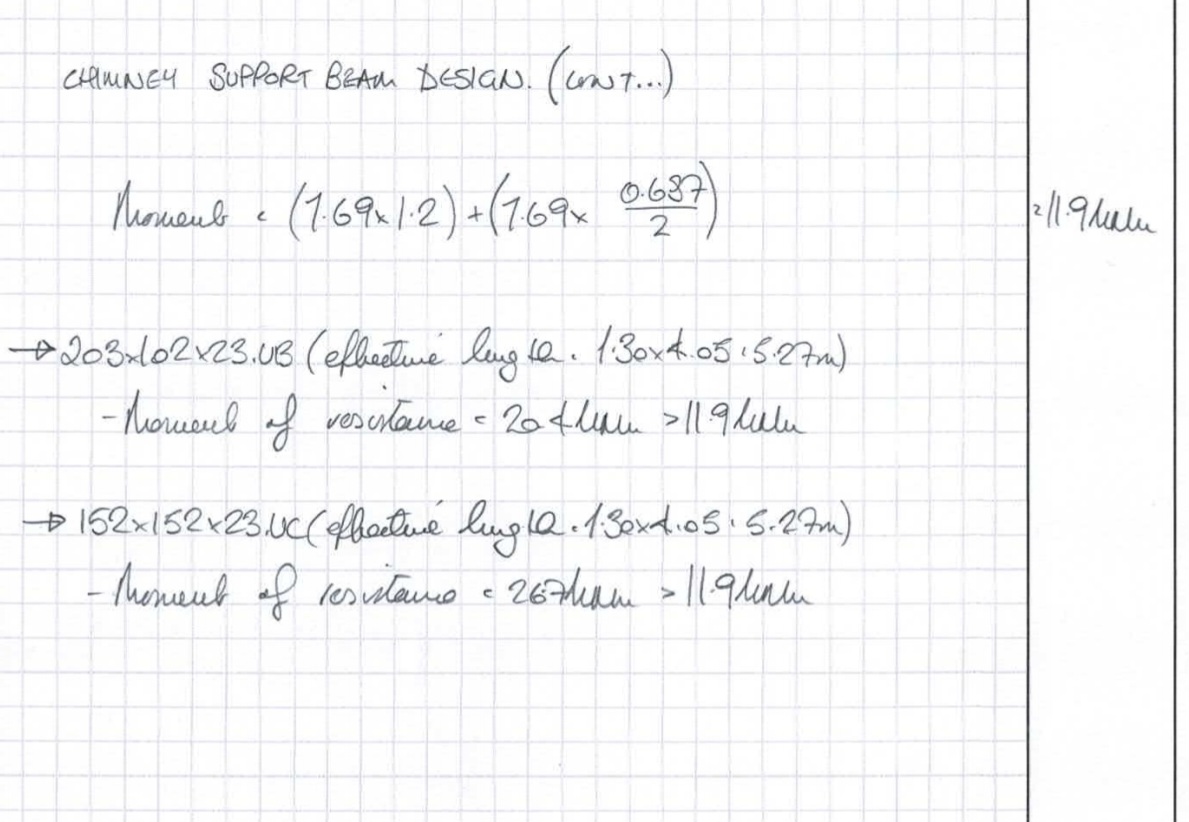 CHIMNEY SUPPORT BEAM DESIGN. (CONT...)
Moment = (7.69x1.2) + (7.69x 0.687/2) = 11.9kNm
→ 203x102x23.UB (effective length = 1.30x4.05 = 5.27m)
- Moment of resistance = 20.4kNm > 11.9kNm
→ 152x152x23.UC (effective length = 1.30x4.05 = 5.27m)
- Moment of resistance = 26.7kNm > 11.9kNm